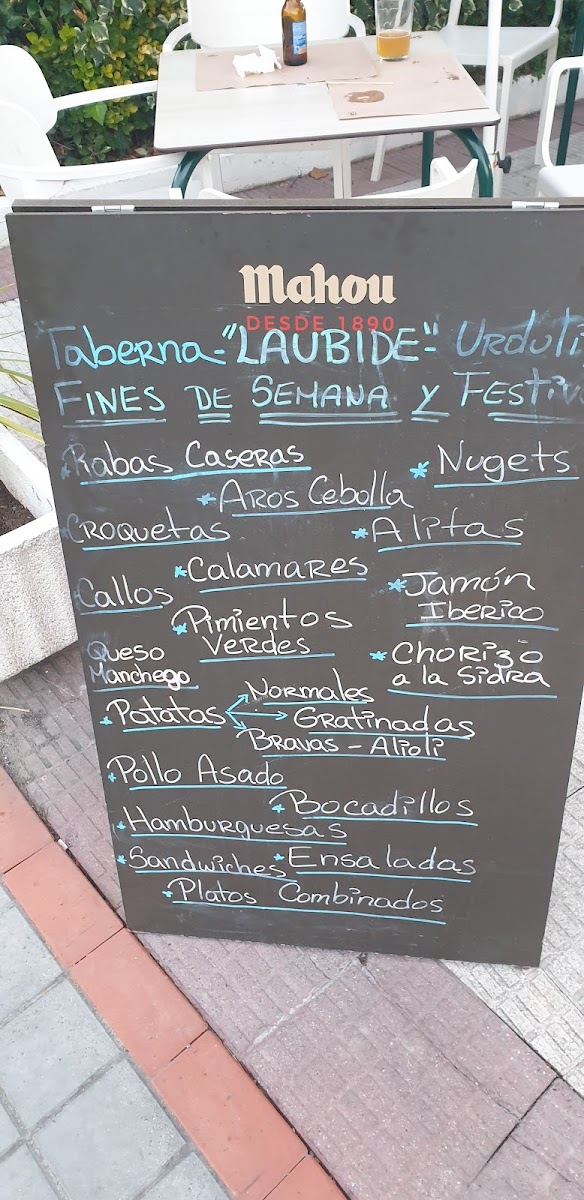 Mahou
DESDE 1890
Taberna - "LAUBIDE" - Urduliz
Fines de Semana y Festivos
* Rabas Caseras
* Nugets
* Aros Cebolla
* Croquetas
* Alitas
* Calamares
* Callos
* Jamón
Iberico
* Pimientos
Verdes
Queso
Manchego
* Chorizo
a la Sidra
* Patatas
Normales
Gratinadas
Bravas - Alioli
* Pollo Asado
* Bocadillos
* Hamburguesas
* Sandwiches
* Ensaladas
* Platos Combinados